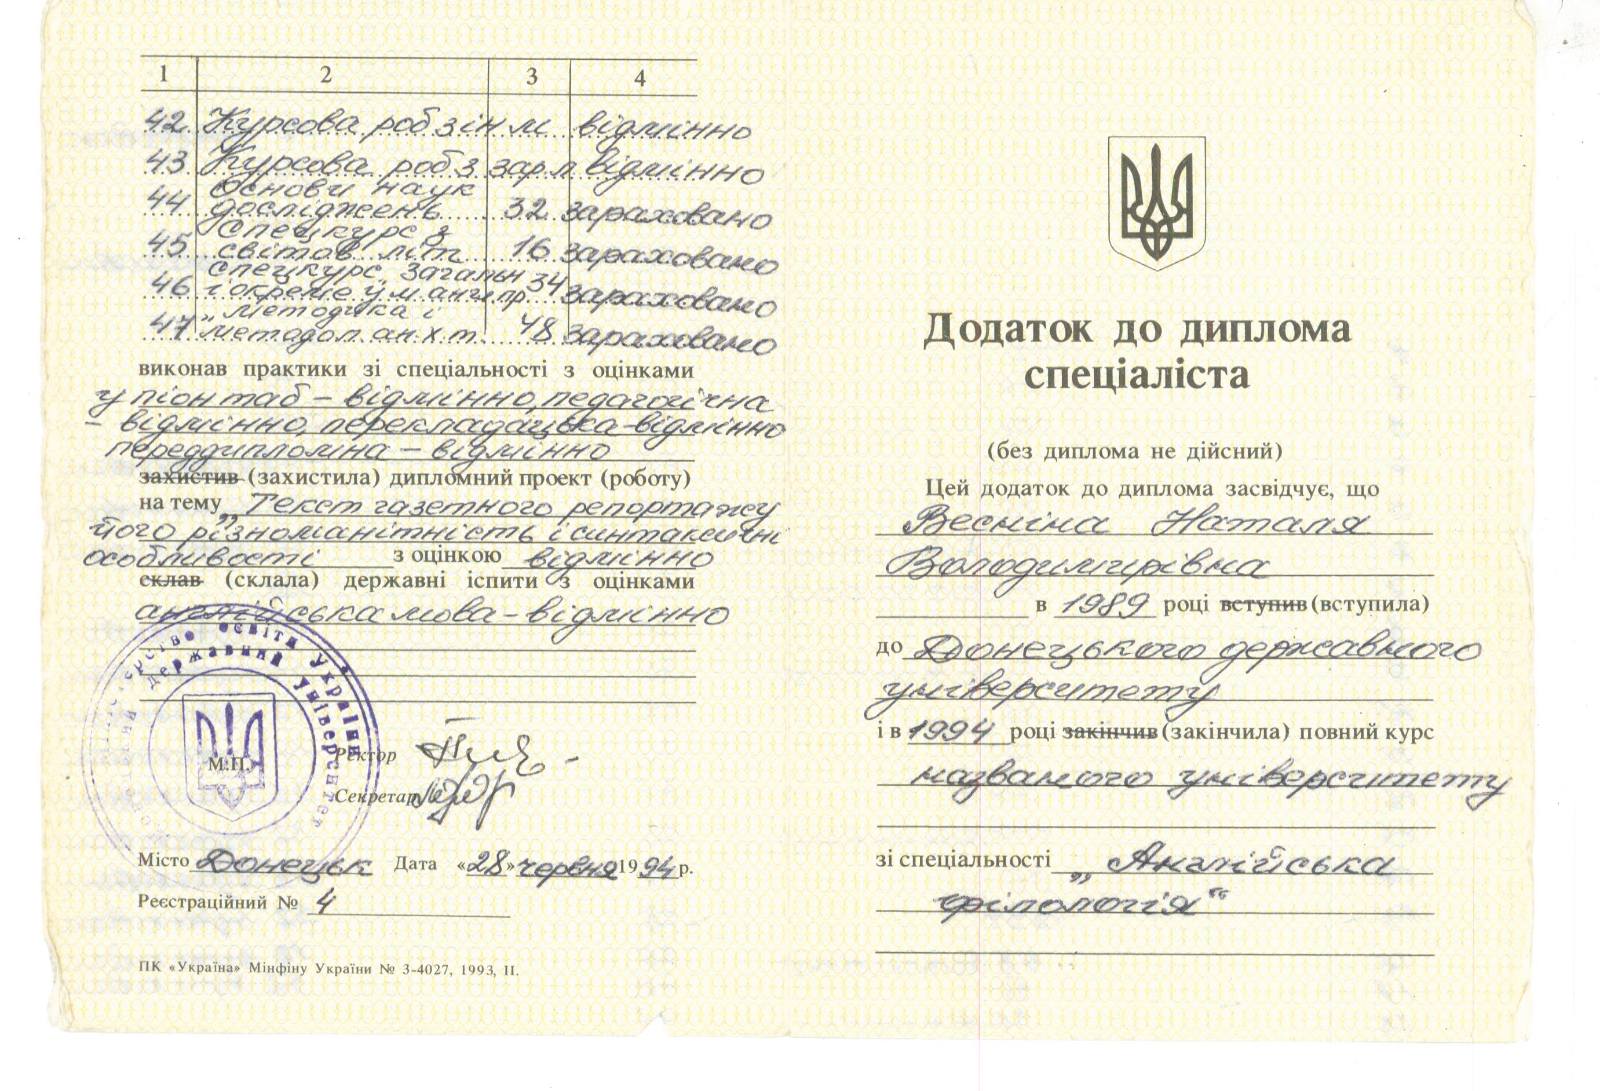 1 2 3 4
42 Курсова роб з ін м відмінно
43 Курсова роб з зар л відмінно
44 Основи наук
досліджень 32 зараховано
45 Спецкурс з
світов літ 16 зараховано
46 Спецкурс. Загальн
і окреме у м англ пр 34 зараховано
47 "Методика і
методол ан. х. т. 48 зараховано
виконав практики зі спеціальності з оцінками
у піон таб – відмінно, педагогічна
– відмінно, перекладацька - відмінно
переддипломна – відмінно
захистив (захистила) дипломний проект (роботу)
на тему „Текст газетного репортажу
його різноманітність і синтаксичні
особливості з оцінкою відмінно
склав (склала) державні іспити з оцінками
англійська мова – відмінно
Міністерство освіти України
державний університет
М.П.
Ректор
Секретар
Місто Донецьк Дата «28» червня 1994 р.
Реєстраційний № 4
ПК «Україна» Мінфіну України № 3-4027, 1993, II.
Додаток до диплома
спеціаліста
(без диплома не дійсний)
Цей додаток до диплома засвідчує, що
Весніна Наталя
Володимирівна
в 1989 році вступив (вступила)
до Донецького державного
університету
і в 1994 році закінчив (закінчила) повний курс
названого університету
зі спеціальності „Англійська
філологія“